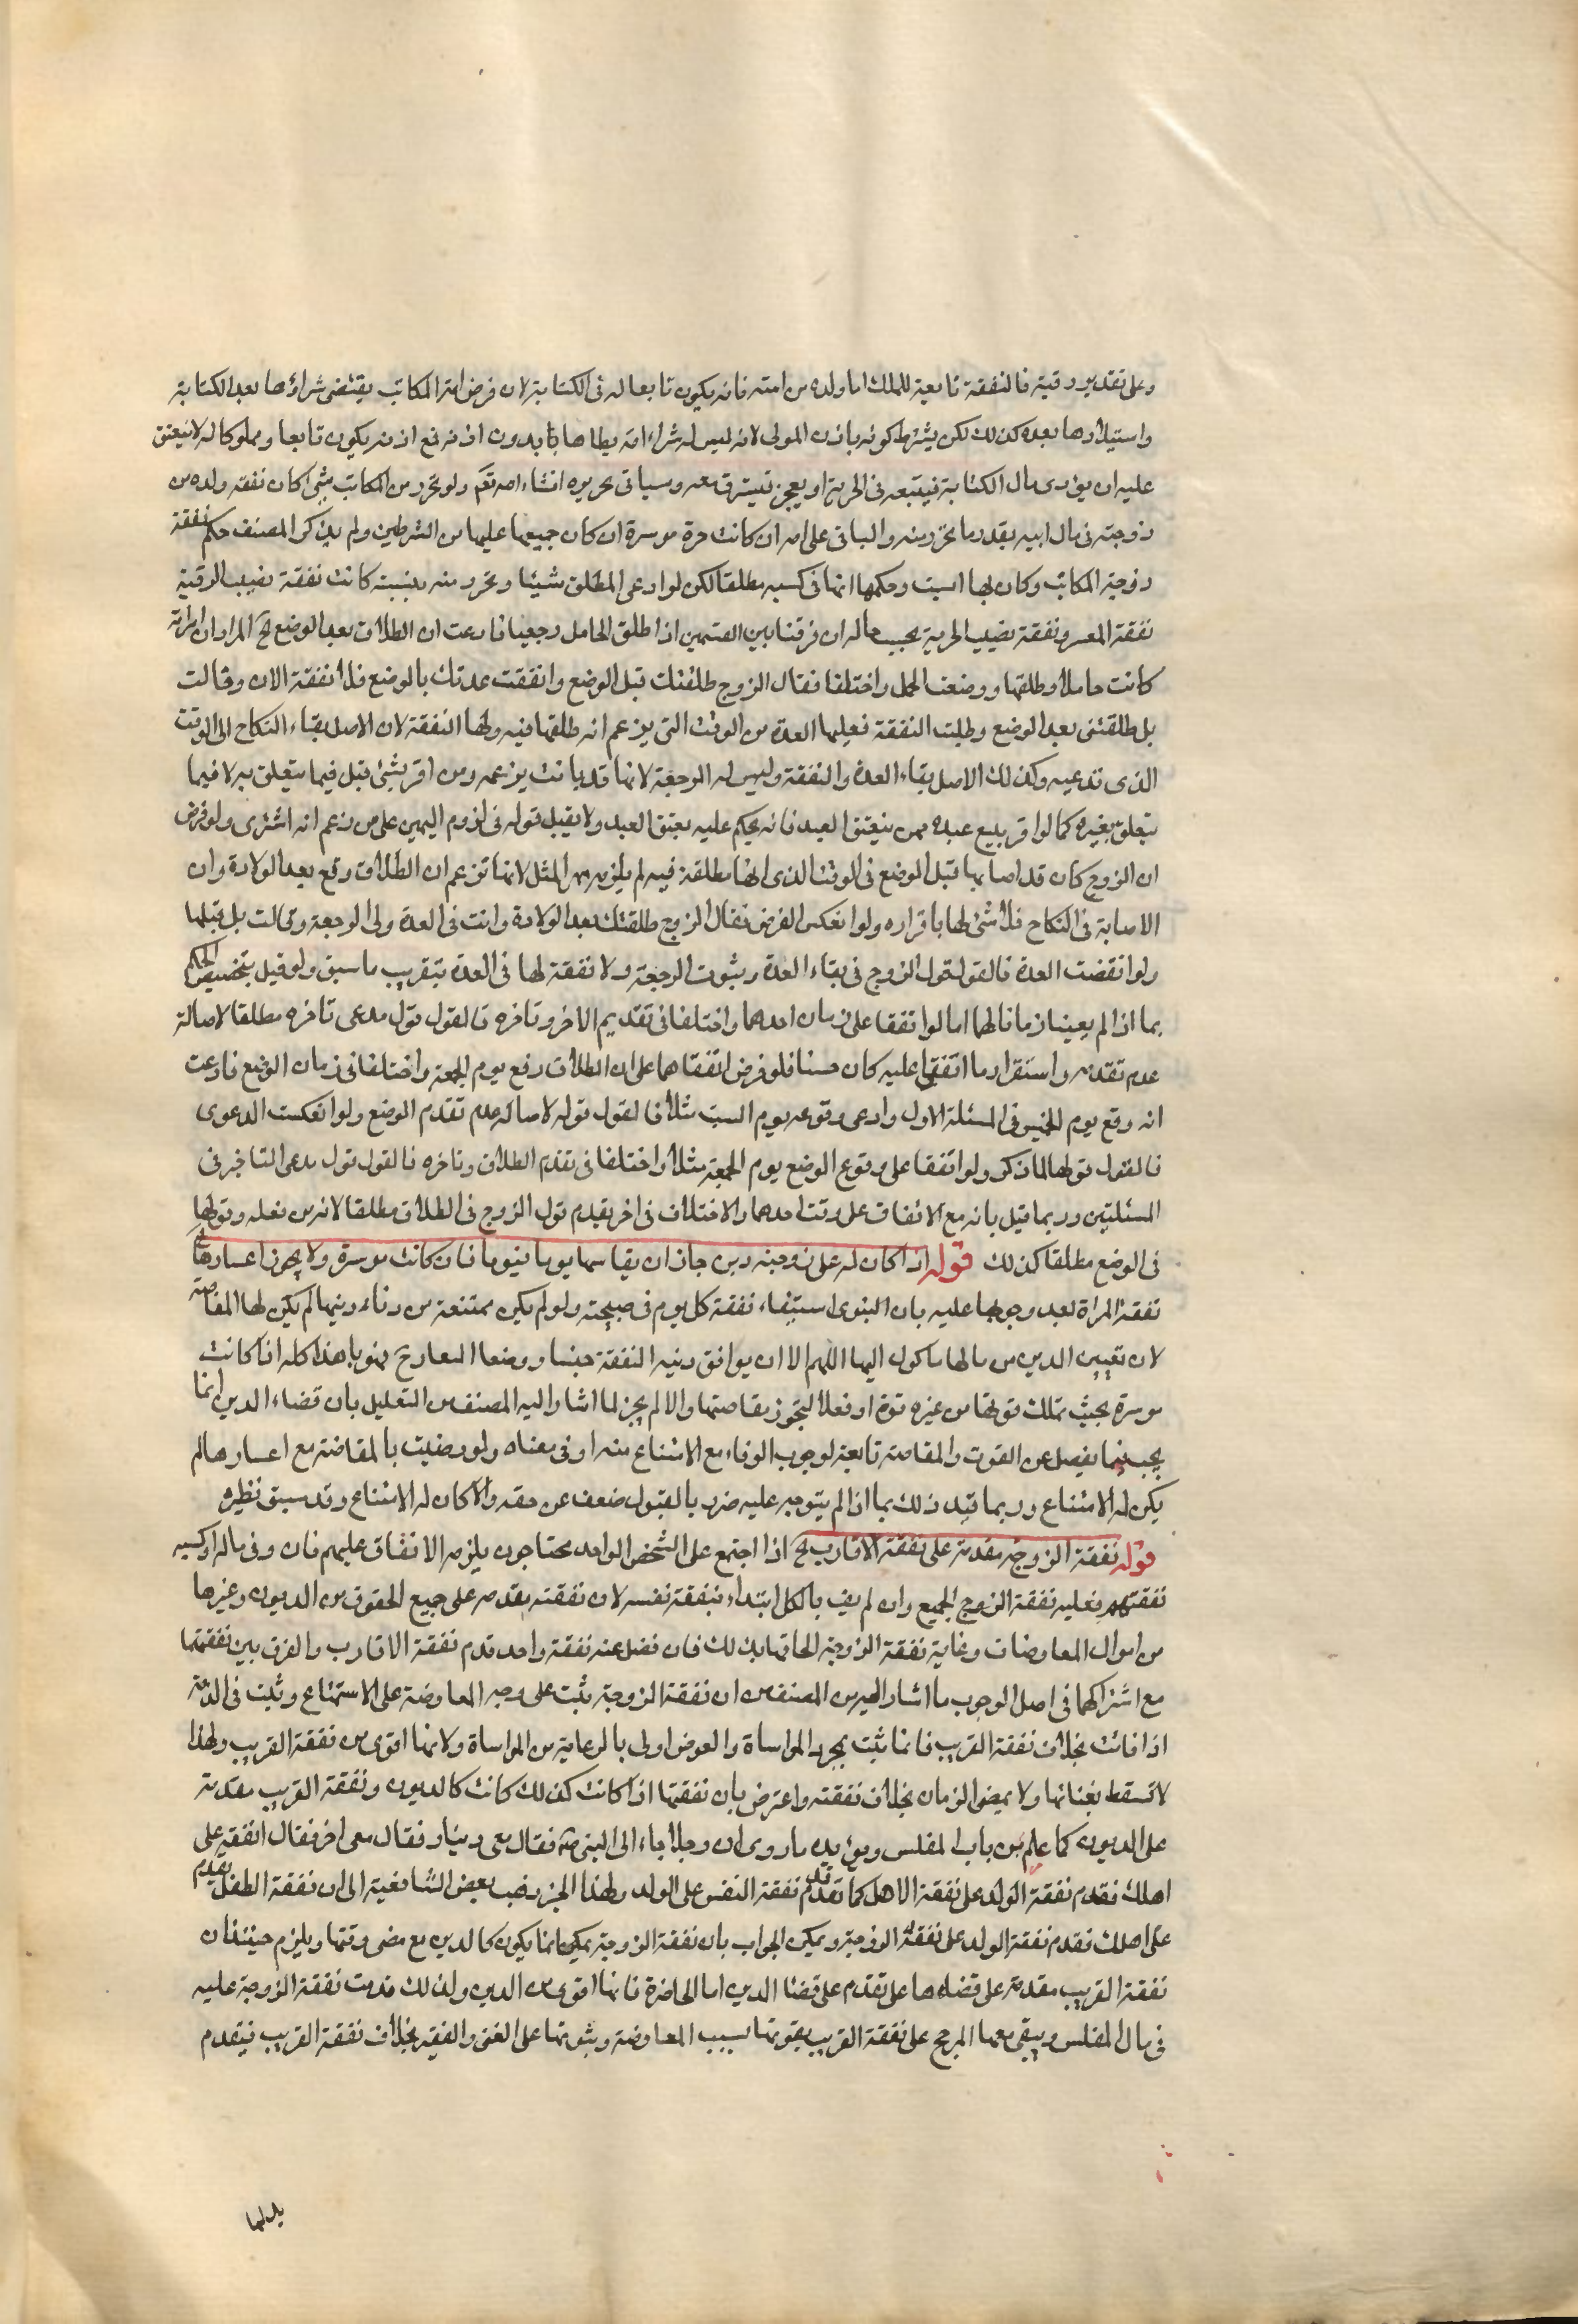 وعلى تقدير رقيته فالنفقة تابعية للملك اما ولده من امته فانه يكون تابعا له فى الكتابة لان فرض امة المكاتب يقتضى شراؤها بعد الكتابة
واستيلادها بعده كذلك لكن يشترط كونه باذن المولى لانه ليس له شراء امة يطاها بدون اذنه فمع اذنه يكون تابعا ومملوكا له لا ينعتق
عليه ان يؤدى مال الكتابة فيتبعه فى الحرية او يعجز فيسترق معه وسياتى تحريره انشاء الله تعم ولو تحرر من المكاتب شئ كان نفقه ولده من
زوجته فى مال ابيه بقدر ما تحرر منه والباقى على امه ان كانت حرة موسرة ان كان جميعها عليها من الشرطين ولم يذكر المصنف حكم نفقة
زوجة المكاتب وكان بها اسبت وحكمها انها فى كسبه مطلقا لكن لو ادعى المطلق شيئا وتحرر منه بنسبته كانت نفقة نصيب الرقية
نفقة المعسر ونفقة نصيب الحرية بحسب حاله ان فرقنا بين القسمين اذا طلق الحامل رجعيا فادعت ان الطلاق بعد الوضع الخ المراد ان امراته
كانت حاملا وطلقها ووضعت الحمل واختلفا فقال الزوج طلقتك قبل الوضع وانقضت عدتك بالوضع فلا نفقة الان وقالت
بل طلقتنى بعد الوضع وطلبت النفقة فعليها العدة من الوقت التى يزعم انه طلقها فيه ولها النفقة لان الاصل بقاء النكاح الى الوقت
الذى تدعيه وكذلك الاصل بقاء العدة والنفقة وليس له الرجعة لانها قد بانت بزعمه ومن اقر بشئ قبل فيما يتعلق به لا فيما
يتعلق بغيره كما لو اقر ببيع عبده ممن ينعتق العبد فانه يحكم عليه بعتق العبد ولا يقبل قوله فى لزوم اليمين على من زعم انه اشترى ولو فرض
ان الزوج كان قد اصابها قبل الوضع فى الوقت الذى انها مطلقة فيه لم يلزمه مهر المثل لانها تزعم ان الطلاق وقع بعد الولادة وان
الاصابة فى النكاح فلا شئ لها باقراره ولو انعكس الفرض فقال الزوج طلقتك بعد الولادة وانت فى العدة ولى الرجعة وقالت بل قبلها
ولو انقضت العدة فالقول قول الزوج فى بقاء العدة وثبوت الرجعة ولا نفقة لها فى العدة بتقريب ما سبق ولو قيل بتخصيص الحكم
بما اذا لم يعينا زمانا لهما اما لو اتفقا على زمان احدهما واختلفا فى تقديم الاخر وتاخره فالقول قول مدعى تاخره مطلقا لاصالة
عدم تقدمه واستقرار ما اتفقا عليه كان حسنا فلو فرض اتفقاهما على ان الطلاق رفع يوم الجمعة واختلفا فى زمان الوضع فادعت
انه وقع يوم الخميس فى المسئلة الاول وادعى وقوعه يوم السبت مثلا فالقول قوله لاصالة عدم تقدم الوضع ولو انعكست الدعوى
فالقول قولها لما ذكر ولو اتفقا على وقوع الوضع يوم الجمعة مثلا واختلفا فى تقدم الطلاق وتاخره فالقول قول مدعى التاخير فى
المسئلتين وربما قيل بانه مع الاتفاق على وقت احدهما والاختلاف فى اخر يقدم قول الزوج فى الطلاق مطلقا لانه من فعله وقولها
فى الوضع مطلقا كذلك قوله اذا كان له على زوجته دين جاز ان يقاسمها يوما فيوما فان كانت موسرة ولا يجوز اعسارها الخ
نفقة المراة بعد وجوبها عليه بان ابنوى استيفاء نفقة كل يوم فى صبيحته ولو لم يكن ممتنعة من وفاء دينها لم يكن لها المقاصة
لان تعيين الدين من مالها ما كول اليها اللهم الا ان يوافق دينه النفقة جنسا ووصفا المعارج منويا هذا كله اذا كانت
موسرة بحيث تملك قوتها من غيره قوة او فعلا لتجوز مقاصتها والا لم يجز لما اشار اليه المصنف من التعليل بان قضاء الدين انما
يجب فيما يفضل عن القوت والمقاصة تابعة لوجوب الوفاء مع الامتناع منه او فى معناه ولو رضيت بالمقاصة مع اعسارها لم
يكن له الامتناع وربما قيد ذلك بما اذا لم يتوجه عليه ضرر بالقبول ضعف عن حقه والا كان له الامتناع وقد سبق نظيره
قوله نفقة الزوجة مقدمة على نفقة الاقارب الخ اذا اجتمع على الشخص الواحد محتاجون يلزمه الانفاق عليهم فان وفى ماله او كسبه
نفقتهم فعليه نفقة الزوج الجميع وان لم يف بالكل ابتداء بنفقة نفسه لان نفقته مقدمه على جميع الحقوق من الديون وغيرها
من اموال المعاوضات وغاية نفقة الزوجة الحاقها بذلك فان فضل عنه نفقة واحد قدم نفقة الاقارب والفرق بين نفقتها
مع اشتراكهما فى اصل الوجوب ما اشار اليه من المصنف من ان نفقة الزوجة تثبت على وجه المعاوضة على الاستمتاع وتثبت فى الذمة
اذا فاتت بخلاف نفقة القريب فانما تثبت بمجرد المواساة والعوض اولى بالرعاية من المواساة ولانها اقوى من نفقة القريب ولهذا
لا تسقط بغنائها ولا بمضى الزمان بخلاف نفقته واعترض بان نفقتها اذا كانت كذلك كانت كالديون ونفقة القريب مقدمة
على الديون كما علم من باب المفلس ويؤيده ما روى ان رجلا جاء الى النبى ص فقال معى دينار فقال معى اخر فقال انفقه على
اهلك فقدم نفقة الولد على نفقة الاهل كما قد تقدم نفقة النفس على الولد ولهذا الخبر ذهب بعض الشافعية الى ان نفقة الطفل تقدم
على اهلك فقدم نفقة الولد على نفقة الزوجة ويمكن الجواب بان نفقة الزوجة يمكن انما يكون كالدين مع مضى وقتها ويلزم حينئذ ان
نفقة القريب مقدمة على قضاءها على تقدم على قضاء الدين اما الحاضرة فانها اقوى من الدين ولذلك قدمت نفقة الزوجة عليه
فى مال المفلس ويبقى معها المرجح على نفقة القريب بقوتها بسبب المعاوضة وبثبوتها على الغنى والفقير بخلاف نفقة القريب فيقدم